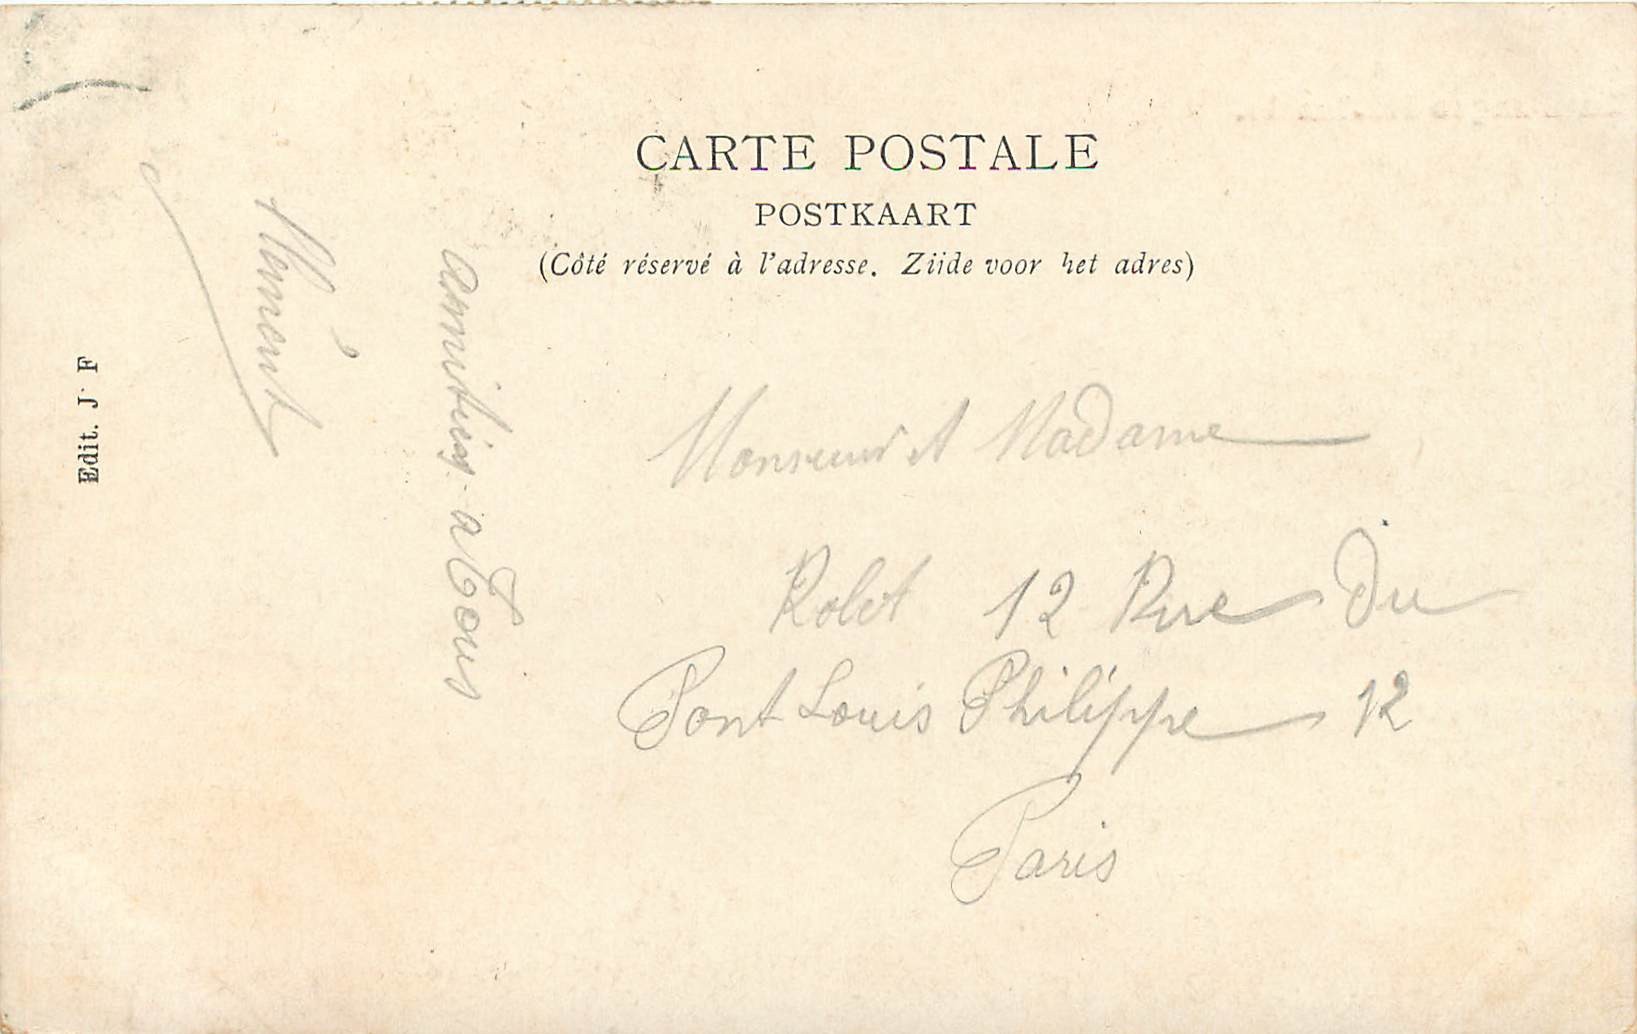 CARTE POSTALE
POSTKAART
(Côté réservé à l'adresse. Zijde voor het adres)
Edit. J F
amitiés a tous
Monsieur et Madame
Rolet 12 Rue Du
Pont Louis Philippe 12
Paris